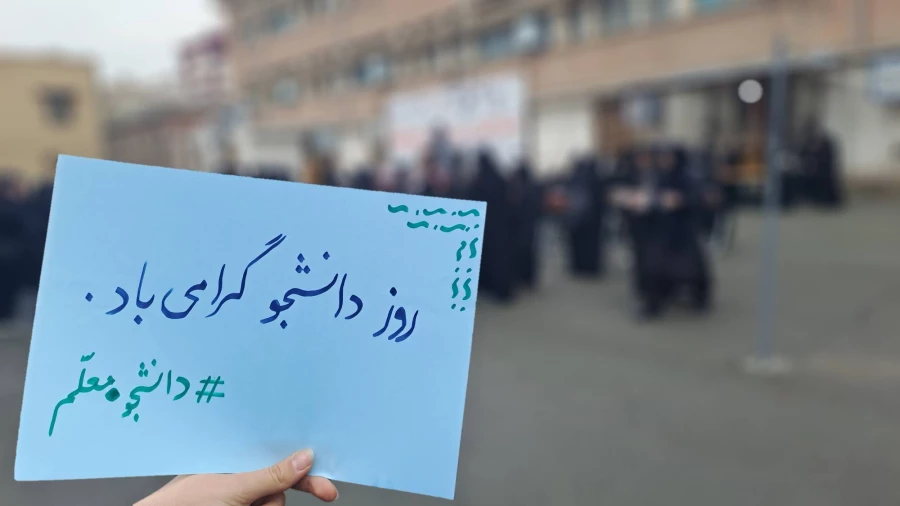 روز دانشجو گرامی باد.
#دانشجو‌معلّم